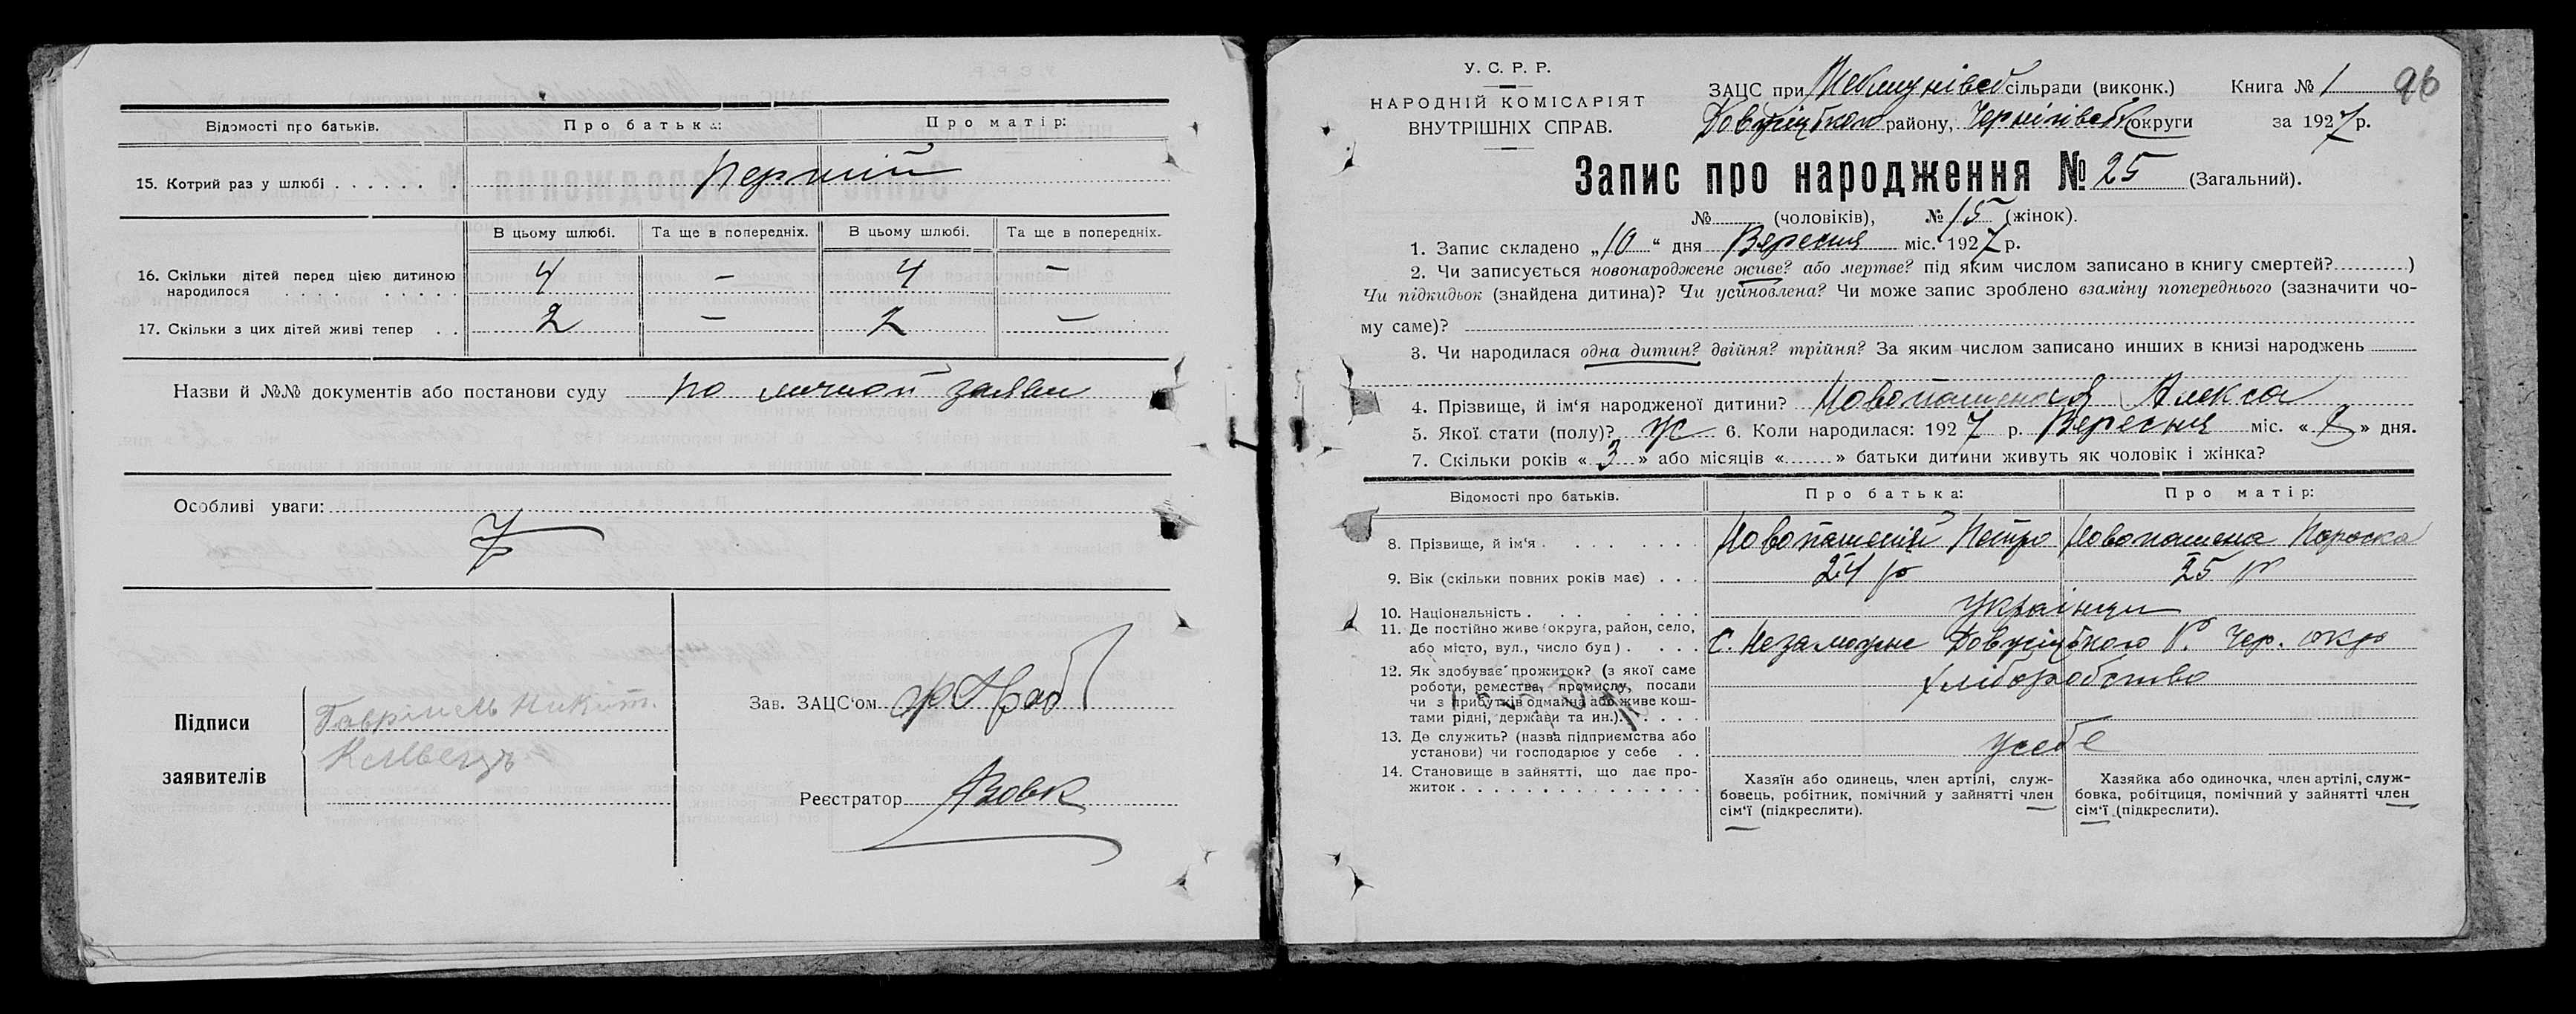 Відомості про батьків.
Про батька:
Про матір:
15. Котрий раз у шлюбі
перший
В цьому шлюбі.
Та ще в попередніх.
В цьому шлюбі.
Та ще в попередніх.
16. Скільки дітей перед цією дитиною
народилося
4 — 4 —
17. Скільки з цих дітей живі тепер
2 — 2 —
Назви й №№ документів або постанови суду по личной заяви
Особливі уваги:
Підписи
заявителів
Зав. ЗАЦС'ом
Реєстратор АВовк
У. С. Р. Р.
НАРОДНІЙ КОМІСАРІЯТ
ВНУТРІШНІХ СПРАВ.
ЗАЦС при сільради (виконк.) Книга № 1 96
району, Чернігівськ округи за 1927 р.
Запис про народження № 25 (Загальний).
№ (чоловіків), № 15 (жінок).
1. Запис складено „10“ дня Вересня міс. 1927 р.
2. Чи записується новонароджене живе? або мертве? під яким числом записано в книгу смертей? )
Чи підкидьок (знайдена дитина)? Чи усиновлена? Чи може запис зроблено взаміну попереднього (зазначити чо-
му саме)?
3. Чи народилася одна дитин? двійня? трійня? За яким числом записано инших в книзі народжень
4. Прізвище, й ім'я народженої дитини? Новопашеная Алекса
5. Якої стати (полу)? ж 6. Коли народилася: 1927 р. Вересня міс. « 8 » дня.
7. Скільки років « 3 » або місяців « » батьки дитини живуть як чоловік і жінка?
Відомості про батьків.
Про батька:
Про матір:
8. Прізвище, й ім'я
Новопашений Петро
Новопашена Параска
9. Вік (скільки повних років має)
24 р
25 р
10. Національність
українци
11. Де постійно живе (округа, район, село,
або місто, вул., число буд)
с. Незаможне Довжицького Р. Чер. окр
12. Як здобуває прожиток? (з якої саме
роботи, ремества, промислу, посади
чи з прибутків одмайна або живе кош-
тами рідні, держави та ин.)
хліборобство
13. Де служить? (назва підприємства або
установи) чи господарює у себе
усебе
14. Становище в зайнятті, що дає про-
житок
Хазяїн або одинець, член артілі, служ-
бовець, робітник, помічний у зайнятті член
сім'ї (підкреслити).
Хазяйка або одиночка, член артілі, служ-
бовка, робітниця, помічний у зайнятті член
сім'ї (підкреслити).